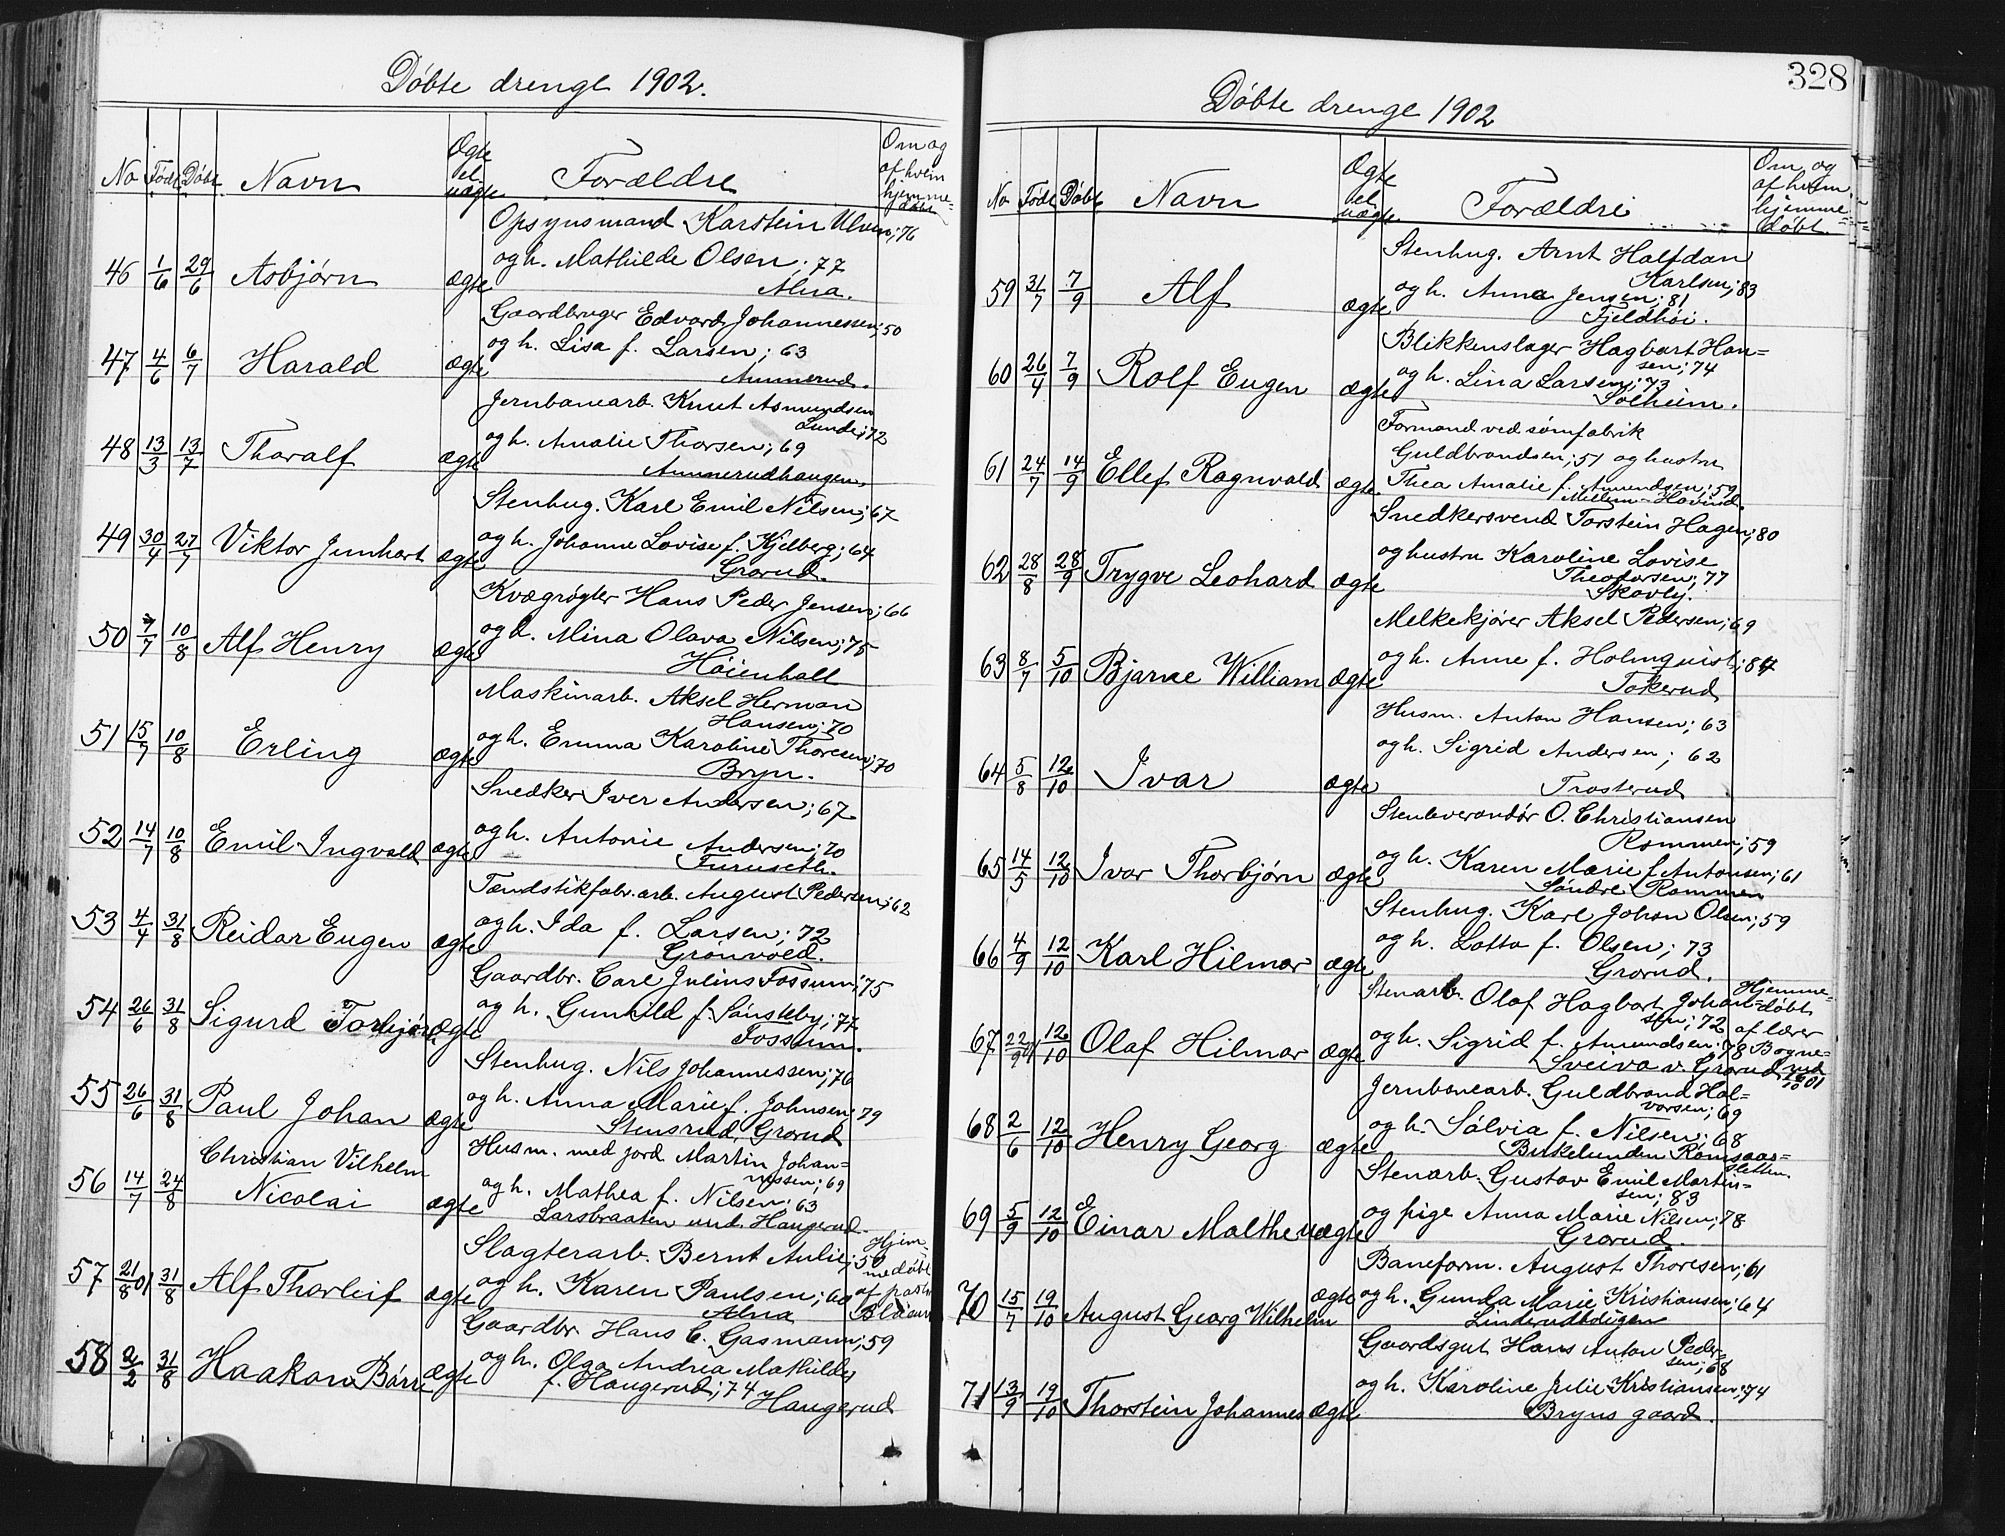 Döbte drenge 1902.
No Född Döbt Navn Ægte el. uægte Forældre Om og af hvem hjemme=döbt
Opsynsmand Karstein Ulven; 76
46 1/6 29/6 Asbjørn ægte og h. Mathilde Olsen; 77
Alna.
Gaardbruger Edvard Johannessen; 50
47 4/6 6/7 Harald ægte og h. Lisa f. Larsen; 63
Ammerud.
Jernbanearb. Knut Asmundsen
Lunde; 72
48 13/3 13/7 Tharalf ægte og h. Amalie Thorsen; 69
Ammerudhaugen
Stenhug. Karl Emil Nilsen; 67
49 30/4 27/7 Viktor Junhart ægte og h. Johanne Lovise f. Kjelberg; 64
Grorud.
Kvægrøgter Hans Peder Jensen; 66
50 7/7 10/8 Alf Henry ægte og h. Mina Olava Nilsen; 75
Höienhall
Maskinarb. Aksel Herman
Hansen; 70
51 15/7 10/8 Erling ægte og h. Emma Karoline Thoresen; 70
Bryn.
Snedker Iver Andersen; 67
52 14/7 10/8 Emil Ingvald ægte og h. Antonie Andersen; 70
Furuseth.
Tændstikfabr.arb. August Pedersen; 62
53 4/4 31/8 Reidar Eugen ægte og h. Ida f. Larsen; 72
Grönvold.
Gaardbr. Carl Julius Fossum; 75
54 26/6 31/8 Sigurd Torbjörn ægte og h. Gunhild f. Sönsteby; 77
Fossum.
Stenhug. Nils Johannessen; 76
55 26/6 31/8 Paul Johan ægte og h. Anna Marie f. Johnsen; 79
Stensrud, Grorud
Husm. med jord Martin Johan=
nessen; 69
56 14/7 24/8 Christian Vilhelm
Nicolai ægte og h. Mathea f. Nilsen; 63
Larsbraaten und. Haugerud
Slagterarb. Bernt Aulie; 50 Hjem=
57 21/8 01 31/8 Alf Thorleif ægte og h. Karen Paulsen; 60 medöbt af past.
Alna
Gaardbr. Hans C. Gasmann; 59
58 2/2 31/8 Haakon Börre ægte og h. Olga Andrea Mathilde
f. Haugerud; 74 Haugerud
328
Döbte drenge 1902
No Född Döbt Navn Ægte el. uægte Forældre Om og af hvem hjemme=döbt.
Stenhug. Arnt Halfdan
Karlsen; 83
59 31/7 7/9 Alf ægte og h. Anna Jensen; 81
Fjeldhöi.
Blikkenslager Hagbart Han=
sen; 74
60 26/4 7/9 Rolf Eugen ægte og h. Lina Larsen; 73
Solheim.
Formand ved sömfabrik
Guldbrandsen; 51 og hustru
61 24/7 14/9 Ellef Ragnvald ægte Thea Amalie f. Amundsen; 59
Mellem-Hovind.
Snedkersvend Torstein Hagen; 80
62 28/8 28/9 Trygve Leohard ægte og hustru Karoline Lovise
Theodorsen; 77
Skovly.
Melkekjörer Aksel Pedersen; 69
63 8/7 5/10 Bjarne William ægte og h. Anne f. Holmquist; 84
Tokerud
Husm. Anton Hansen; 63
64 5/8 12/10 Ivar ægte og h. Sigrid Andersen; 62
Trosterud
Stenleverandör O. Christiansen
Rommen; 59
65 14/5 12/10 Ivar Thorbjørn ægte og h. Karen Marie f. Antonsen; 61
Söndre Rommen
Stenhug. Karl Johan Olsen; 59
66 4/9 12/10 Karl Hilmar ægte og h. Lotta f. Olsen; 73
Grorud.
Stenarb. Olaf Hagbart Johan= Hjemme=döbt
sen; 72 af lærer
67 22/9 01 12/10 Olaf Hilmar ægte og h. Sigrid f. Amundsen; 78
Sveiva v. Grorud
Jernbanearb. Guldbrand Hal=
vorsen; 69
68 2/6 12/10 Henry Georg ægte og h. Sölvia f. Nilsen; 68
Birkelunden Romsaas=
sletten.
Stenarb. Gustav Emil Martin=
sen; 83
69 5/9 12/10 Einar Malthe uægte og pige Anna Marie Nilsen; 78
Grorud.
Baneform. August Thoresen; 61
70 15/7 19/10 August Georg Wilhelm ægte og h. Gunda Marie Kristiansen; 64
Linderudkoligen
Gaardsgut Hans Anton Peder=
sen; 68
71 13/9 19/10 Thorstein Johannes ægte og h. Karoline Julie Kristiansen; 74
Bryns gaard.